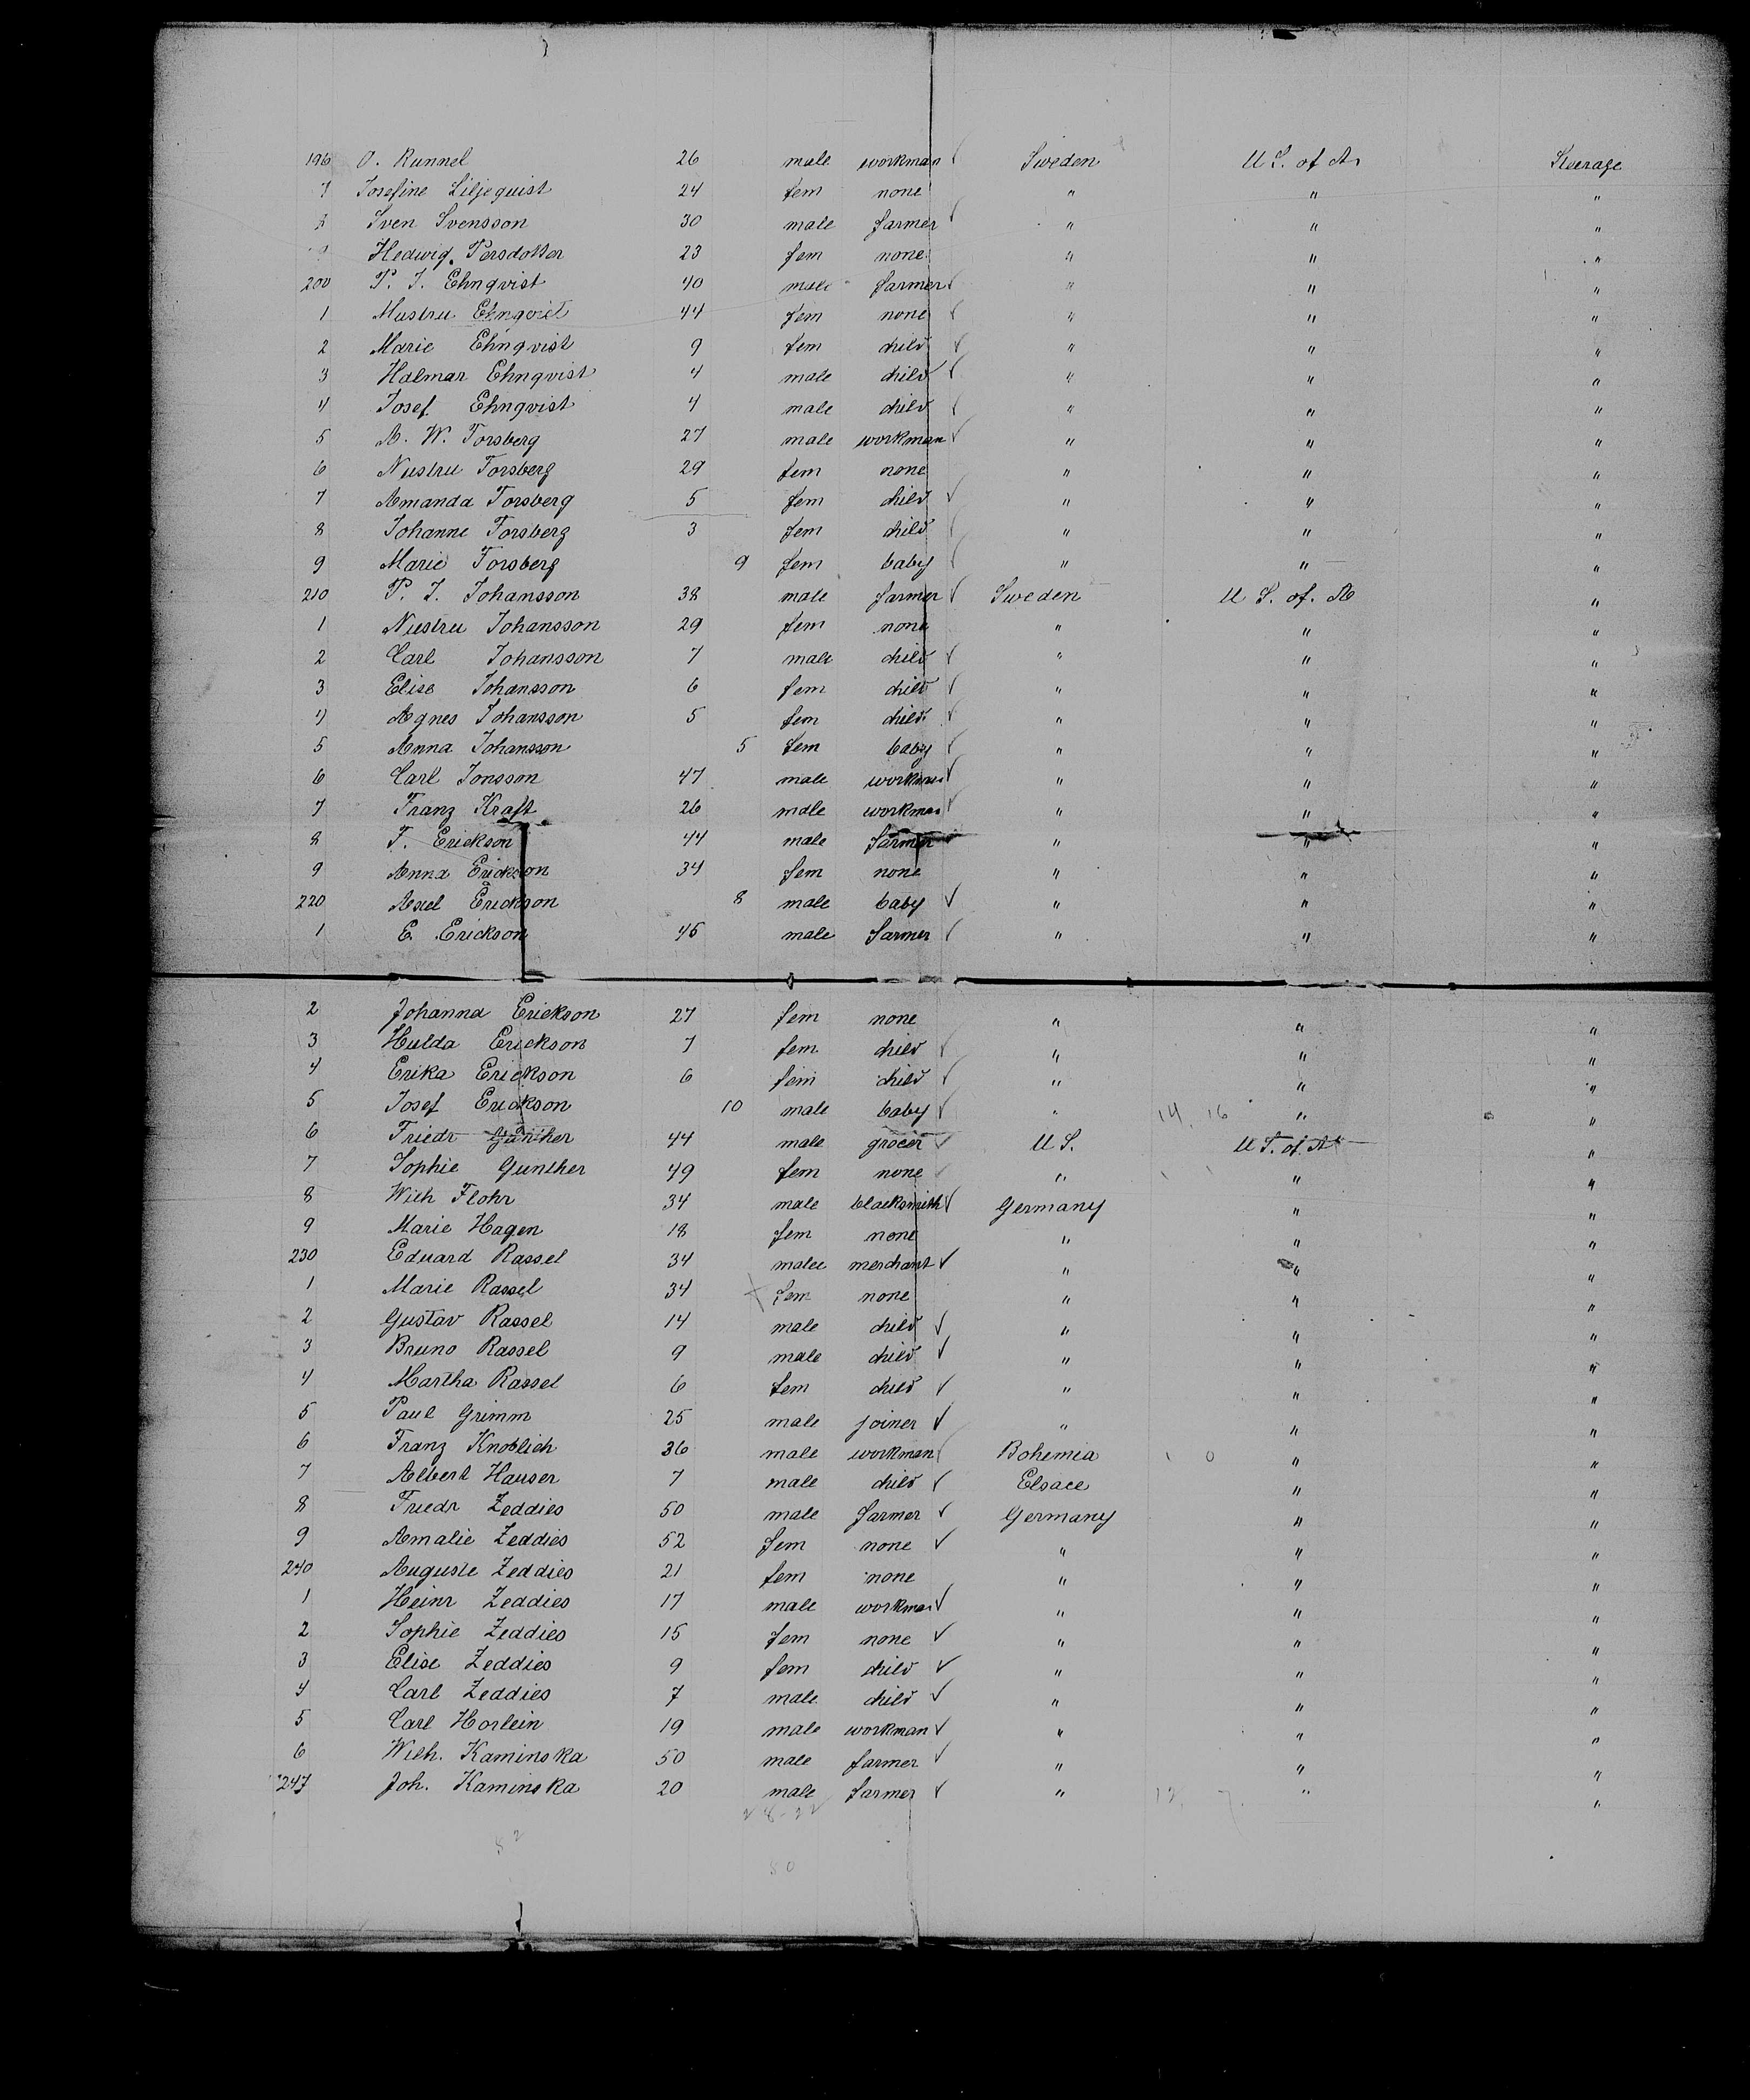 196 O. Runnel 26 male workman Sweden U S. of A. Steerage
7 Josefine Liljequist 24 fem none " " "
8 Sven Svensson 30 male farmer " " "
9 Hedwig Persdotter 23 fem none " " "
200 P. J. Ehnqvist 40 male farmer " " "
1 Hustru Ehnqvist 44 fem none " " "
2 Marie Ehnqvist 9 fem child " " "
3 Halmar Ehnqvist 4 male child " " "
4 Josef Ehnqvist 4 male child " " "
5 A. W. Forsberg 27 male workman " " "
6 Nustru Forsberg 29 fem none " " "
7 Amanda Forsberg 5 fem child " " "
8 Johanne Forsberg 3 fem child " " "
9 Marie Forsberg 9 fem baby " " "
210 P. J. Johansson 38 male farmer Sweden U S. of. A "
1 Nustru Johansson 29 fem none " " "
2 Carl Johansson 7 male child " " "
3 Elise Johansson 6 fem child " " "
4 Agnes Johansson 5 fem child " " "
5 Anna Johansson 5 fem baby " " "
6 Carl Jonsson 47 male workman " " "
7 Franz Kraft 26 male workman " " "
8 F. Erickson 44 male farmer " " "
9 Anna Erickson 34 fem none " " "
220 Axel Erickson 8 male baby " " "
1 E. Erickson 45 male farmer " " "
2 Johanna Erickson 27 fem none " " "
3 Hulda Erickson 7 fem child " " "
4 Erika Erickson 6 fem child " " "
5 Josef Erickson 10 male baby " 14 16 " "
6 Friedr Günther 44 male grocer U S. U S. of A "
7 Sophie Gunther 49 fem none " " "
8 Wilh Flohr 34 male blacksmith Germany " "
9 Marie Hagen 18 fem none " " "
230 Eduard Rassel 34 male merchant " " "
1 Marie Rassel 34 fem none " " "
2 Gustav Rassel 14 male child " " "
3 Bruno Rassel 9 male child " " "
4 Martha Rassel 6 fem child " " "
5 Paul Grimm 25 male joiner " " "
6 Franz Knoblich 36 male workman Bohemia 1 0 " "
7 Albert Hauser 7 male child Elsace " "
8 Friedr Zeddies 50 male farmer Germany " "
9 Amalie Zeddies 52 fem none " " "
240 Auguste Zeddies 21 fem none " " "
1 Heinr Zeddies 17 male workman " " "
2 Sophie Zeddies 15 fem none " " "
3 Elise Zeddies 9 fem child " " "
4 Carl Zeddies 7 male child " " "
5 Carl Horlein 19 male workman " " "
6 Wilh. Kaminska 50 male farmer " " "
247 Joh. Kaminska 20 male farmer " 12 7 " "
28-22
52
50